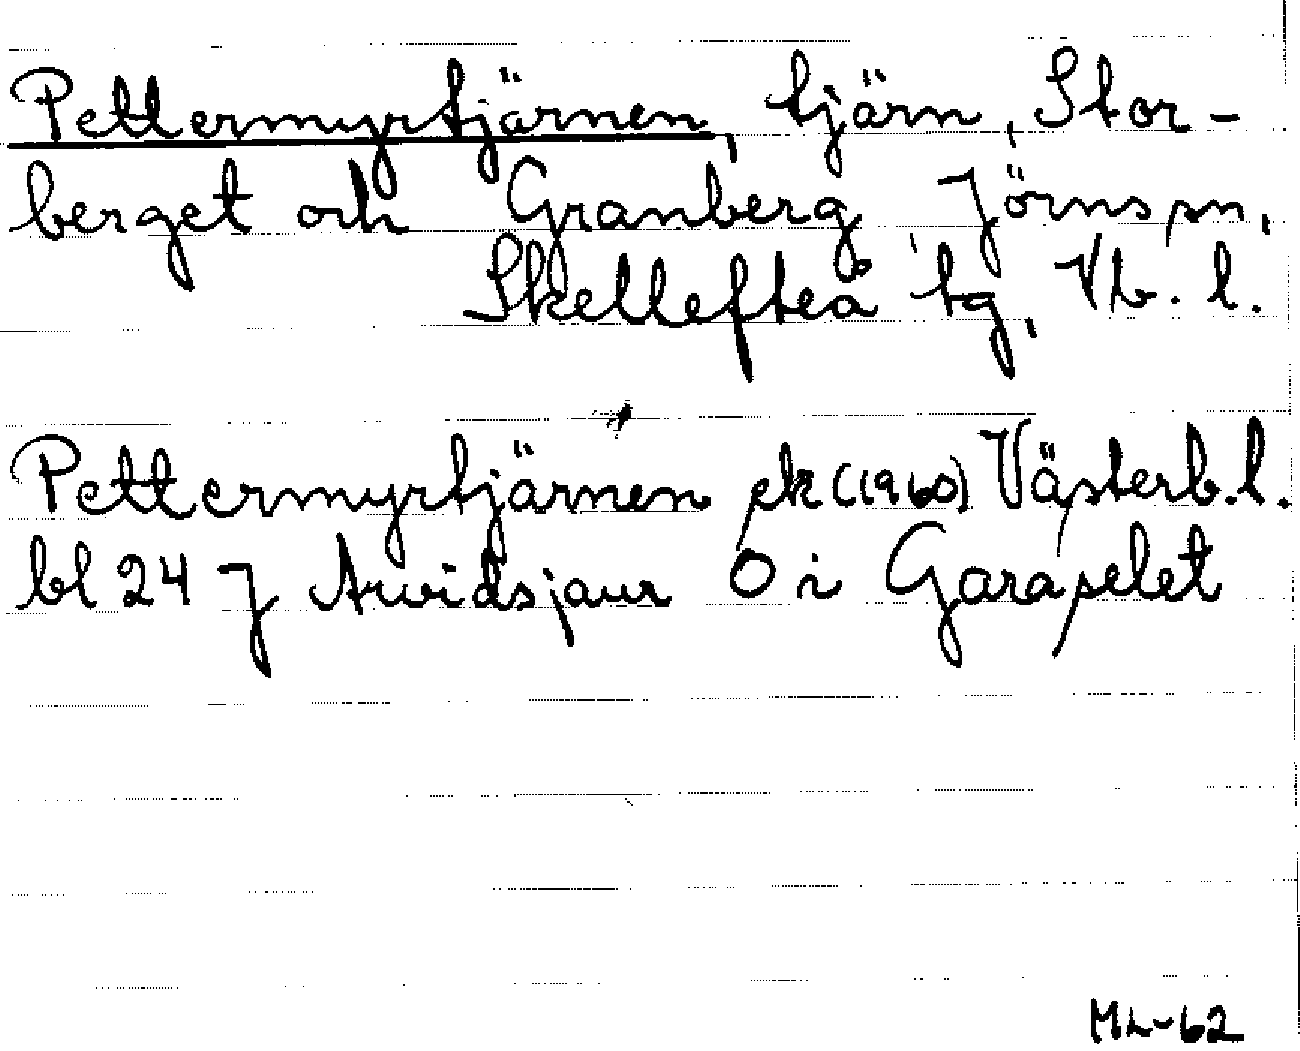 Pettermyrtjärnen, tjärn, Stor-
berget och Granberg, Jörns sn,
Skellefteå tg, Vb. l.
Pettermyrtjärnen ek (1960) Västerb. l.
bl 24 J Arvidsjaur O i Garaselet
ML-62